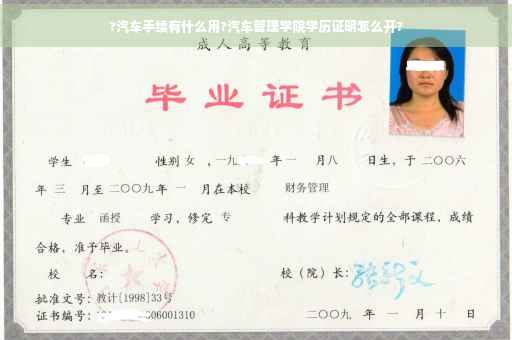 ?汽车手续有什么用?汽车管理学院学历证明怎么开?
成人高等教育
毕业证书
学生 性别 女 ，一九 年 一 月八 日生，于 二〇〇六
年 三 月至 二〇〇九 年 一 月在本校 财务管理
专业 函授 学习，修完 专 科教学计划规定的全部课程，成绩
合格，准予毕业。
校 名： 校（院）长：
批准文号：教计[1998]33号
证书编号： 006001310 二〇〇九 年 一 月 十 日